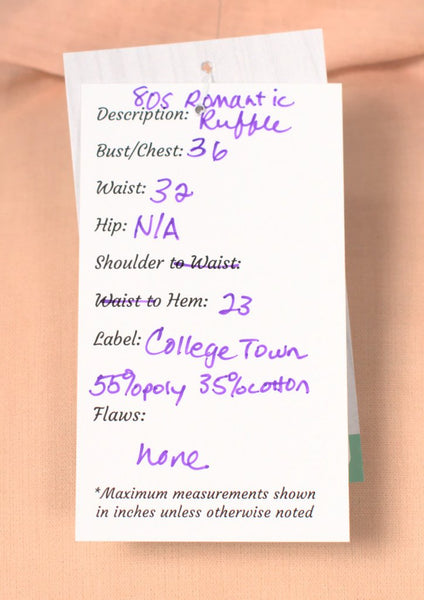 80s Romantic
Description: Ruffle
Bust/Chest: 36
Waist: 32
Hip: N/A
Shoulder to Waist:
Waist to Hem: 23
Label: College Town
55%poly 35%cotton
Flaws:
none
*Maximum measurements shown
in inches unless otherwise noted